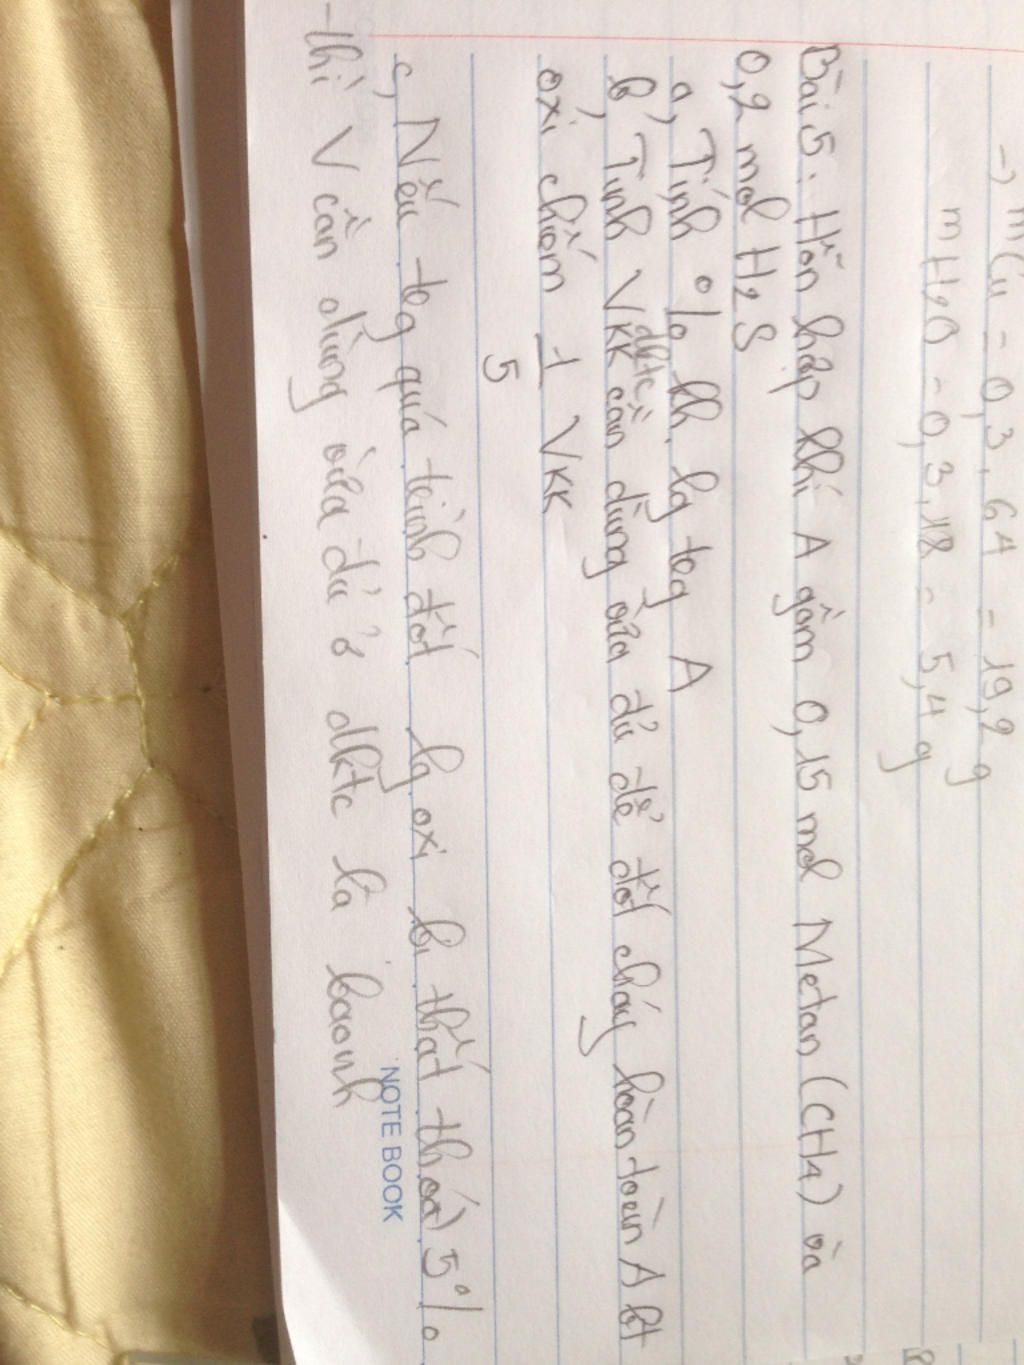 → mCu = 0,3.64 = 19,2 g
mH2O = 0,3.18 = 5,4 g
Bài 5: Hỗn hợp khí A gồm 0,15 mol Metan (CH4) và
0,2 mol H2S
a, Tính % kh. lg tog A
b, Tính VKK đktc cần dùng vừa đủ để đốt cháy hoàn toàn A bt
oxi chiếm 1/5 VKK
c, Nếu tog quá trình đốt lg oxi bị thất thoát 5%
thì V cần dùng vừa đủ ở đktc là baonh
NOTE BOOK